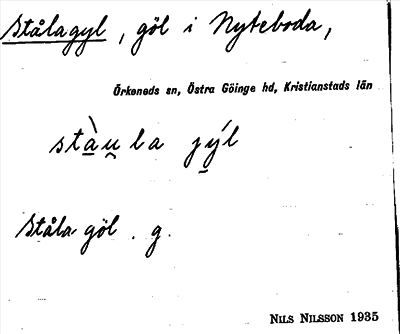 Stålagyl, göl i Nyteboda,
Örkeneds sn, Östra Göinge hd, Kristianstads län
stàu̯la jýl
Stålagöl. g.
NILS NILSSON 1935